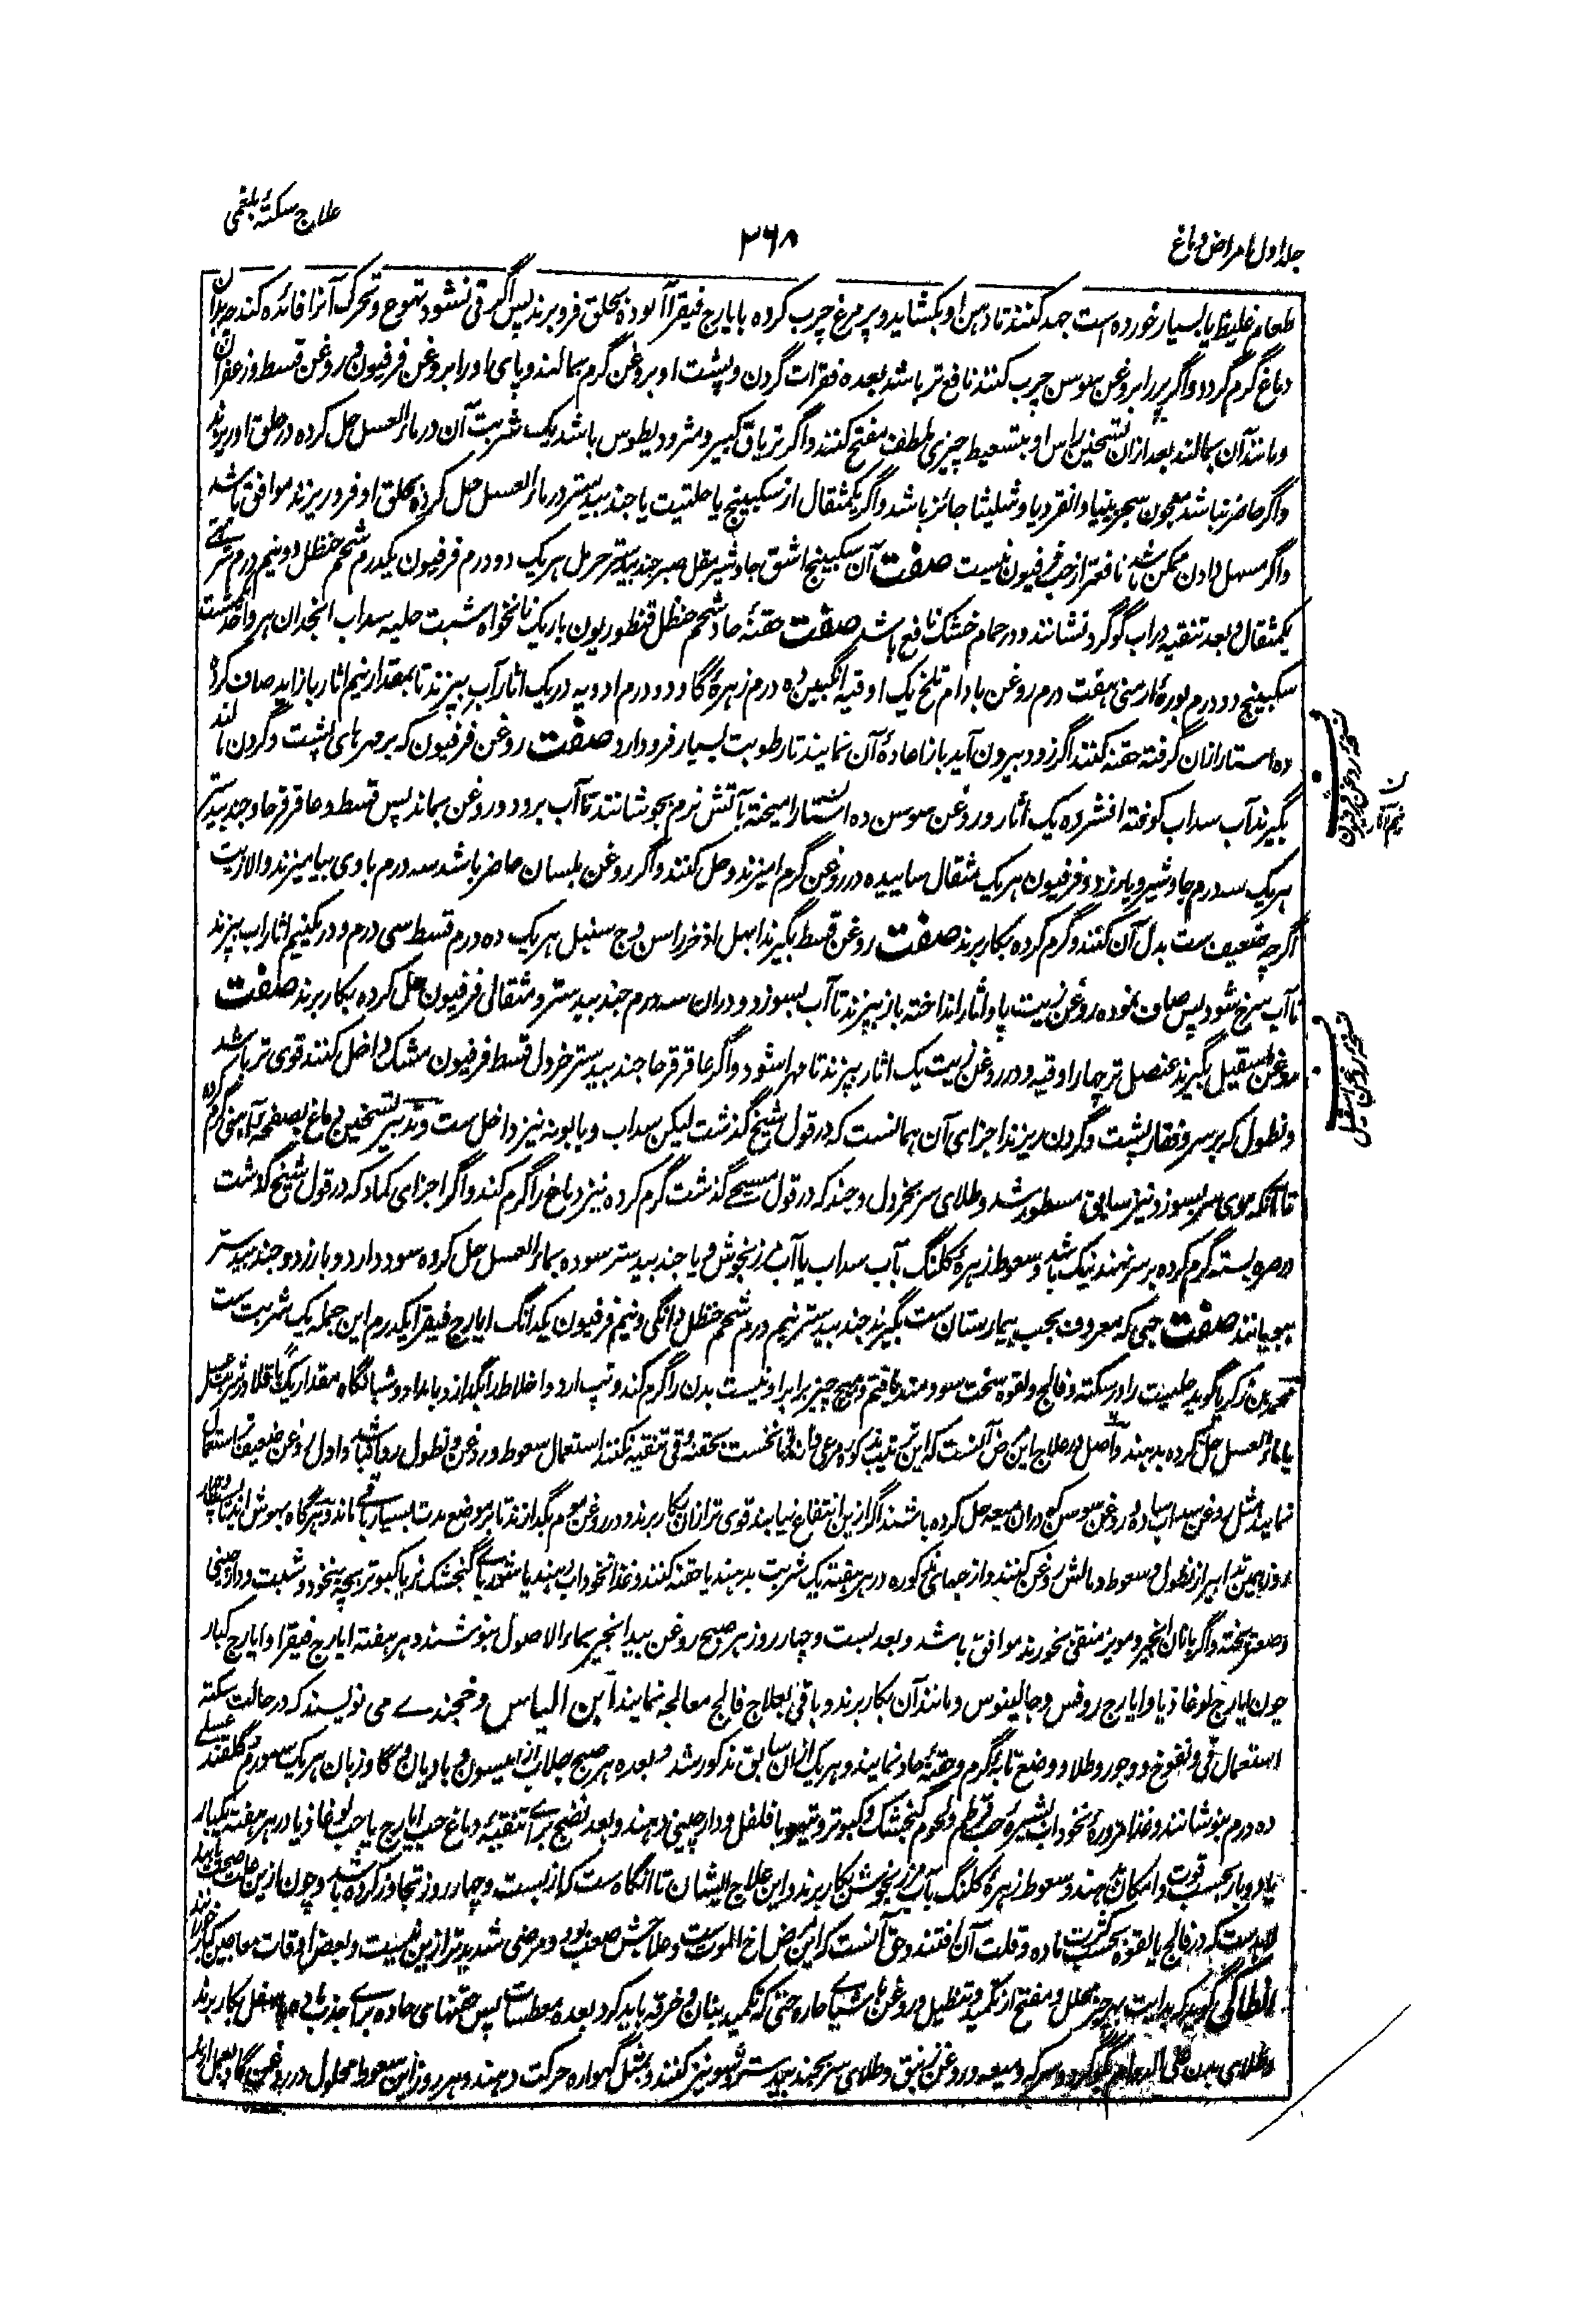 جلد اول امراض دماغ
۳۶۸
علاج سکتهٔ بلغمی
طعام غلیظ یا بسیار خورده است جهد کنند تا دهن او بکشاید و پر مرغ چرب کرده بایارج فیقرا آلوده بحلق فرو برند پس اگر قی نشود تهوع و تحرک آنرا فائده کند و بدان
دماغ گرم گردد و اگر پر را بروغن سوسن چرب کنند نافع تر باشد بعده فقرات گردن و پشت او بروغن گرم بمالند و پای او را بروغن فرفیون و روغن قسط و زعفران
و مانند آن بمالند بعد ازان تسخین راس او بتسعیط چیزی ملطف مفتح کنند و اگر تریاق کبیر و مثرودیطوس باشد یک شربت آن در ماء العسل حل کرده در حلق او ریزند
و اگر حاضر نباشد معجون سجرینیا و انقردیا و شلیثا جائز باشد و اگر یکمثقال از سکبینج یا حلتیت یا جند بیدستر در ماء العسل حل کرده بحلق او فرو ریزند موافق باشد
و اگر مسهل دادن ممکن باشد نافعتر از حب فرفیون نیست صفت آن سکبینج اشق جاوشیر مقل صبر جند بیدستر حرمل هریک دو درم فرفیون یکدرم شحم حنظل دو نیم درم شربتی
یکمثقال و بعد تنقیه در آب گوگرد نشانند و در حمام خشک نافع باشد صفت حقنهٔ حاد شحم حنظل قنطوریون باریک نانخواه شبت حلبه سداب انجدان هر واحد هشت
سکبینج دو درم بورهٔ ارمنی هفت درم روغن بادام تلخ یک اوقیه انگبین ده درم زهرهٔ گاو دو درم ادویه در یک اثار آب بپزند تا بمقدار نیم اثار باز اید صاف کرده
ده استار ازان گرفته حقنه کنند اگر زود بیرون آید باز اعادهٔ آن نمایند تا رطوبت بسیار فرود ارد صفت روغن فرفیون که بر مهرهای پشت و گردن مالند
بگیرند آب سداب کوفته افشرده یک اثار و روغن سوسن ده استار امیخته بآتش نرم بجوشانند تا آب برود و روغن بماند پس قسط و عاقرقرحا و جند بیدستر
هریک سه درم جاوشیر و بارزد و فرفیون هریک مثقال ساییده در روغن گرم امیزند و حل کنند و اگر روغن بلسان حاضر باشد سه درم با وی بیامیزند و الا زیت
اگرچه ضعیف ست بدل آن کنند و گرم کرده بکار برند صفت روغن قسط بگیرند ابهل اذخر راسن وج سنبل هریک ده درم قسط سی درم و در یکنیم اثار اب بپزند
تا آب سرخ شود پس صاف نموده روغن زیت پاو اثار انداخته باز بپزند تا آب بسوزد و دران سه درم جند بیدستر و مثقالی فرفیون حل کرده بکار برند صفت
روغن اسقیل بگیرند عنصل تر چهار اوقیه و در روغن زیت یک اثار بپزند تا مهرا شود و اگر عاقرقرحا جند بیدستر خردل قسط فرفیون مشک داخل کنند قوی تر باشد
و نطول که بر سر و فقار پشت و گردن ریزند اجزای آن همانست که در قول شیخ گذشت لیکن سداب و بابونه نیز داخل ست و تدبیر تسخین دماغ بصفحهٔ آهنی گرم کرده
تا آنکه موی سر بسوزد نیز سابق مسطور شد و طلای سر بخردل و جند که در قول مسیح گذشت گرم کرده نیز دماغ را گرم کند و اگر اجزای کماد که در قول شیخ گذشت
در صره بسته گرم کرده بر سر نهند نیک باشد و سعوط زهرهٔ کلنگ بآب سداب یا آب مرزنجوش و یا جند بیدستر سوده بماء العسل حل کرده سود دارد و بارزد و جند بیدستر
ببویانند صفت حبی که معروف بحب بیمارستان ست بگیرند جند بیدستر نیم درم شحم حنظل دانگی و نیم فرفیون یکدانگ ایارج فیقرا یکدرم این جمله یک شربت ست
محمد بن زکریا گوید حلتیت را در سکته و فالج و لقوه سخت سودمند یافتم و هیچ چیز برابر او نیست بدن را گرم کند و تپ ارد و اخلاط را بگدازد بامداد و شبانگاه مقدار یک باقلا در شربت عسل
یا ماء العسل حل کرده بدهند و اصل در علاج این مرض آنست که این ترتیب مذکوره مرعی دارند تا نخست بحقنه و قی تنقیه نکنند استعمال سعوط و روغن و نطول روا نباشد و اول روغن ضعیف استعمال
نمایند مثل روغن سداب ساده روغن سوسن که دران میعه حل کرده باشند اگر ازین انتفاع نیابند قوی تر ازان بکار برند و در روغن موم بگدازند تا بر موضع مدت بسیار باقی ماند و هرگاه بهوش اید تا بست و چهار
روز همین تدابیر از نطول و سعوط و مالش روغن کنند و از حبهای مذکوره در هر هفته یک شربت بدهند یا حقنه کنند و غذا نخوداب دهند یا شوربای گنجشک نر یا کبوتر بچه بنخود و شبت و دارچینی
و صعتر پخته و اگر با نان انجیر و مویز منقی بخورند موافق باشد و بعد بست و چهار روز هر صبح روغن بید انجیر بماء الاصول بنوشند و هر هفته ایارج فیقرا و ایارج کبار
چون ایارج لوغاذیا و ایارج روفس و جالینوس و مانند آن بکار برند و باقی بعلاج فالج معالجه نمایند ابن الیاس و خجندے می نویسند که در حالت سکته
استعمال قی و نفوخ و وجور و طلا و وضع تابهٔ گرم و حقنهٔ حاد نمایند و هریک ازان سابق مذکور شد و بعده هر صبح جلاب از انیسون و بادیان و گاوزبان هریک سه درم گلقند عسلے
ده درم بنوشانند و غذا مزورهٔ نخوداب بشیرهٔ حب قرطم و لحوم گنجشک و کبوتر و تیهو با فلفل و دارچینی دهند و بعد نضج برائے تنقیهٔ دماغ حب ایارج یا حب لوغاذیا در هر هفته یکبار
یا دو بار بحسب قوت و امکان دهند و سعوط زهرهٔ کلنگ بآب مرزنجوش بکار برند و این علاج ایشان تا انگاه ست که از بست و چهار روز تجاوز کرده باشد و چون ازین علت صحت یابند
لابدست که در فالج یا لقوه بحسب کثرت ماده و قلت آن افتند و حق آنست که این مرض اخ الموت ست و علاجش صعب بود و مرضی شدیدتر ازین نیست و بعض اوقات معاجین کبار
انطاکی گوید که بهر چیز محلل و مفتح از تکمید و تنطیل و روغن اشیائے حاره حتی که تکمید بنان و خرقه باید کرد بعده معطسات پس حقنهای حاده برائے جذب ماده بسفل بکار برند
و طلای بدن علی الدوام بگوگرد و سرکه و میعه و روغن زنبق و طلای سر بجند بیدستر نیز کنند و بمثل گهواره حرکت دهند و هر روز این سعوط محلول در روغن گاو بعمل ارند
نسخه روغن فرفیون
نسخه روغن اسقیل